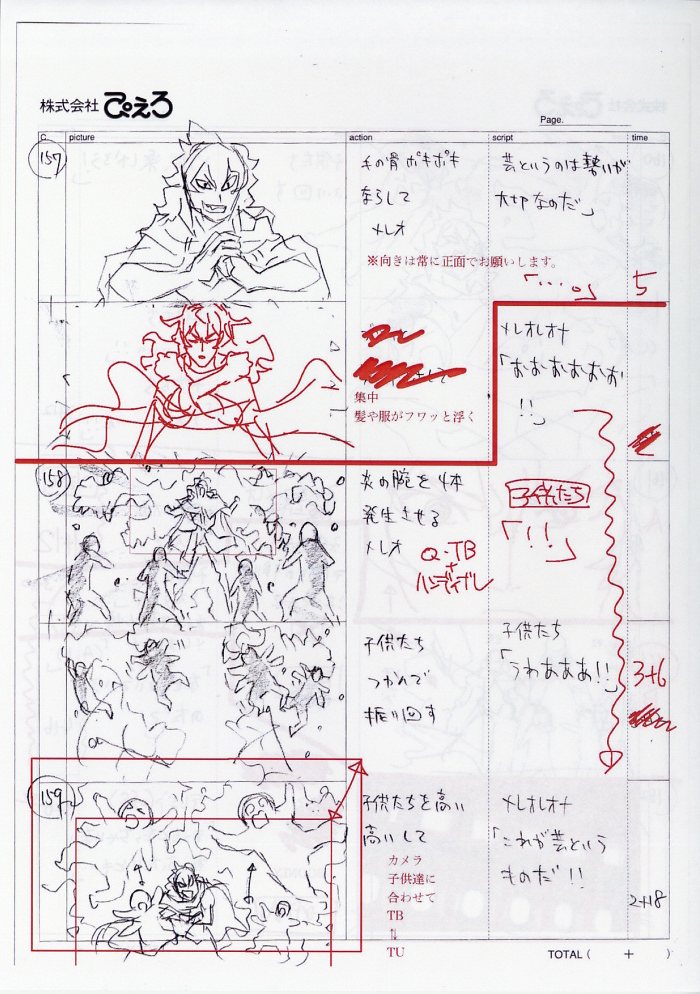 株式会社 ぴえろ
Page.
C. picture action script time
157
手の骨 ポキポキ
ならして
メレオ
※向きは常に正面でお願いします。
芸というのは勢いが
大切なのだ」
「…」
5
集中
髪や服がフワッと浮く
メレオレオナ
「おおおおおお
!!」
158
炎の腕を4本
発生させる
メレオ
Q・TB
+
ハンディブレ
子供たち
「!!」
子供たち
つかんで
振り回す
子供たち
「うわあああ!!」
3+6
159
子供たちを高い
高いして
カメラ
子供達に
合わせて
TB
⇅
TU
メレオレオナ
「これが芸という
ものだ!!
2+18
TOTAL ( + )